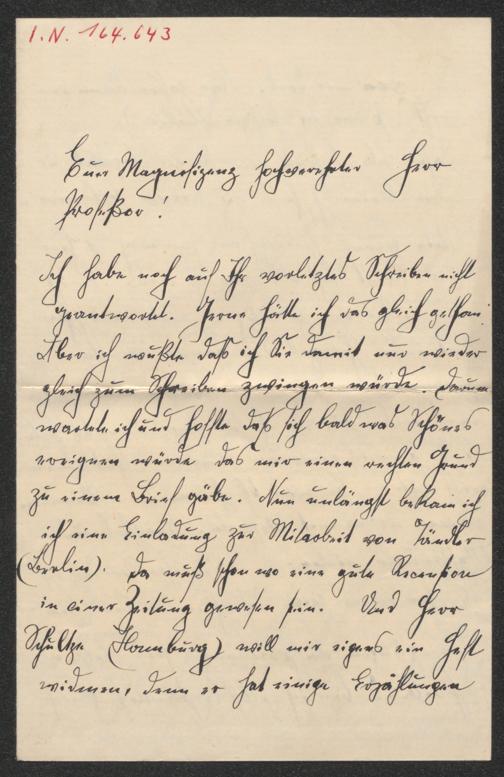 I.N. 164.643
Euer Magnifizenz hochverehrter Herr
Profeßor!
Ich habe noch auf Ihr vorletztes Schreiben nicht
geantwortet. Gerne hätte ich das gleich gethan.
Aber ich wußte daß ich Sie damit nur wieder
gleich zum Schreiben zwingen würde. Darum
wartete ich und hoffte daß sich bald was Schönes
ereignen würde das mir einen rechten Grund
zu einem Brief gäbe. Nun unlängst bekam ich
ich eine Einladung zur Mitarbeit von Tändler
(Berlin). Da muß schon wo eine gute Recension
in einer Zeitung gewesen sein. Und Herr
Schultze (Hamburg) will mir eigens ein Heft
widmen, denn er hat einige Erzählungen